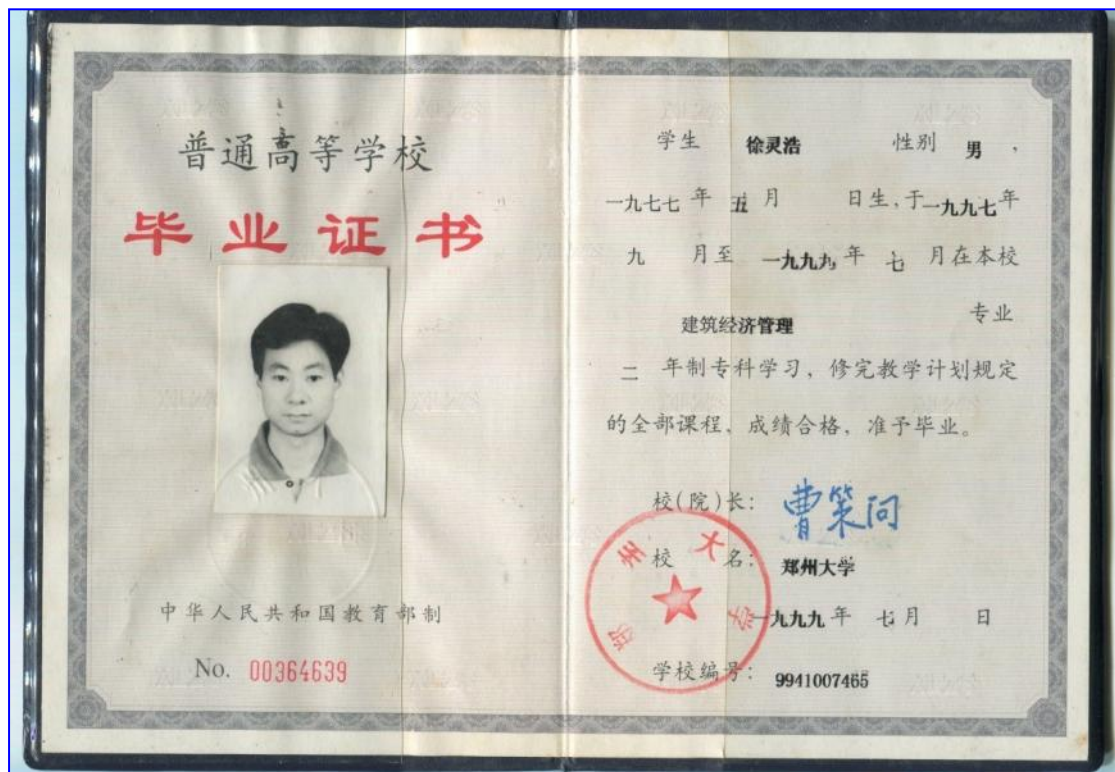 普通高等学校
毕业证书
中华人民共和国教育部制
No. 00364639
学生 徐灵浩 性别 男，
一九七七 年 五 月 日生，于一九九七年
九 月至 一九九九 年 七 月在本校
建筑经济管理 专业
二 年制专科学习，修完教学计划规定
的全部课程，成绩合格，准予毕业。
校(院)长： 曹策问
校 名： 郑州大学
一九九九 年 七月 日
学校编号： 9941007465
郑州大学